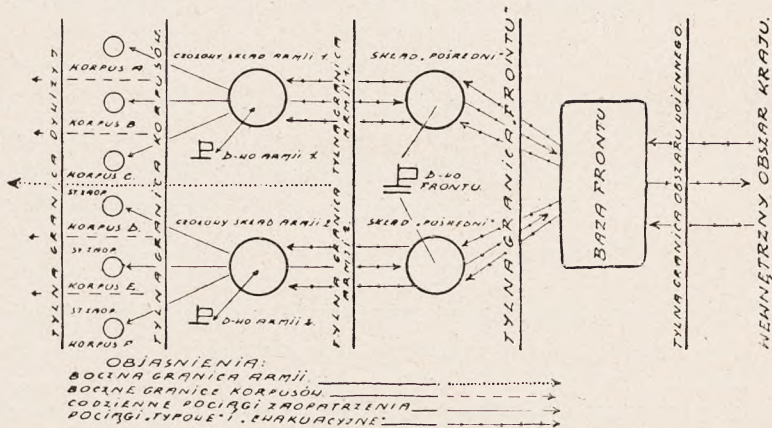 TYLNA GRANICA DYWIZYJ.
KORPUS A
KORPUS B
KORPUS C.
ST ZAOP.
KORPUS D.
ST ZAOP.
KORPUS E.
ST ZAOP.
KORPUS F
TYLNA GRANICA KORPUSÓW.
CZOŁOWY SKŁAD ARMJI 1.
D-WO ARMJI 1.
CZOŁOWY SKŁAD ARMJI 2.
D-WO ARMJI 2.
TYLNA GRANICA ARMJI 1.
TYLNA GRANICA ARMJI 2.
SKŁAD „POŚREDNI"
D-WO
FRONTU.
SKŁAD „POŚREDNI"
TYLNA GRANICA „FRONTU"
BAZA FRONTU
TYLNA GRANICA OBSZARU WOJENNEGO.
WEWNĘTRZNY OBSZAR KRAJU.
OBJAŚNIENIA:
BOCZNA GRANICA ARMJI.
BOCZNE GRANICE KORPUSÓW.
CODZIENNE POCIĄGI ZAOPATRZENIA
POCIĄGI „TYPOWE" I „EWAKUACYJNE"